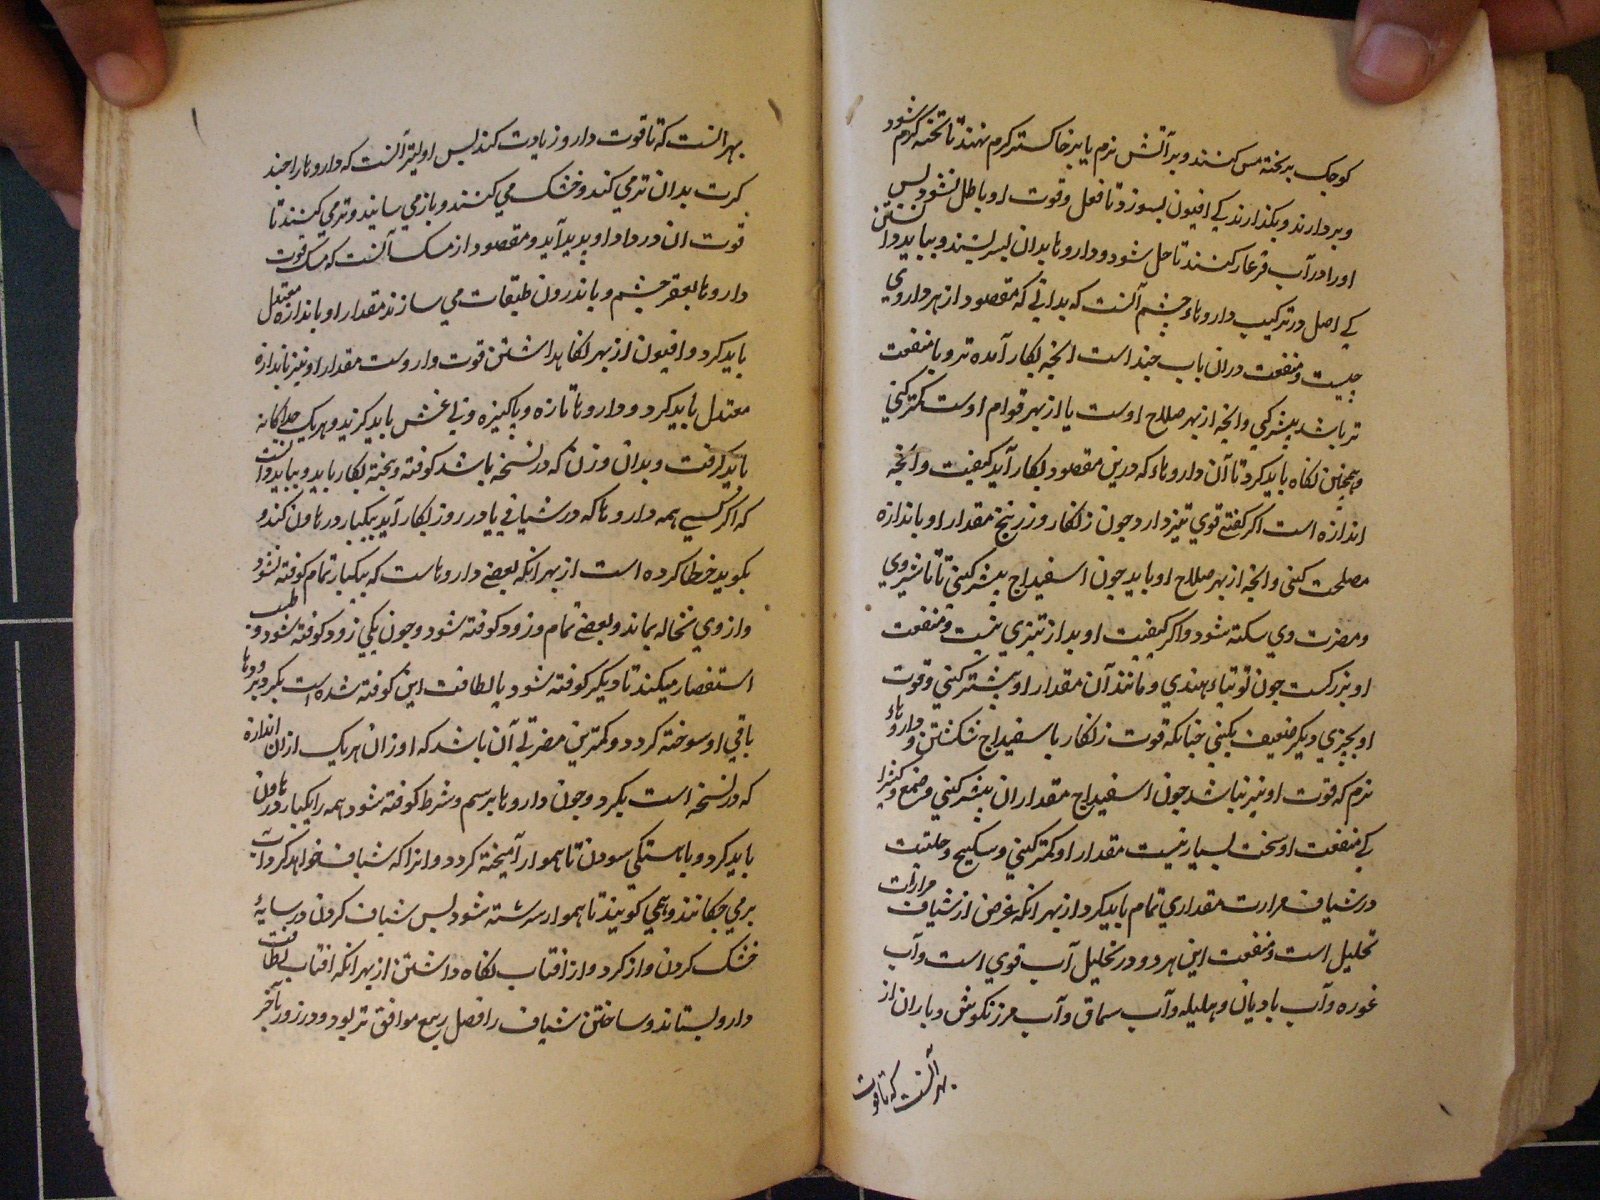 کوچک بر تخته مس کنند و بر آتش نرم یا بر خاکستر گرم نهند تا تخته گرم شود
و بردارند و نگذارند کی افیون بسوزد تا فعل و قوت او باطل نشود پس
او را در آب کنند تا حل شود و داروها بدان بسریشند و بباید دانستن
کی اصل در ترکیب داروهاء چشم آنست که بدانی که مقصود از هر داروی
چیست و منفعت در آن باب چند است انچه بکار آمده تر و با منفعت
تر باشد بیشتر کنی و انچه از بهر صلاح اوست یا از بهر قوام اوست کمتر کنی
و همچنین نگاه باید کرد تا آن داروهاء که درین مقصود بکار آید کیفیت و انچه
اندازه است اگر کیفیتی قوی تیز دارد چون زنکار و زرنیخ مقدار او باندازه
مصلحت کنی و انچه از بهر صلاح او باید چون اسفیداج بیشتر کنی تا تاثیر وی
و مضرت وی شکسته شود و اگر کیفیت او بد از تیزی نیست و منفعت
او بزرگست چون توتیاء هندی و مانند آن مقدار او بیشتر کنی و قوت
او بچیزی دیکر ضعیف بکنی چنانکه قوت زنکار با سفیداج شکستن و داروهاء
نرم که قوت او تیز نباشد چون اسفیداج مقدار آن بیشتر کنی و صمغ و کتیرا
کی منفعت او سخت بسیار نیست مقدار او کمتر کنی و سکبینج و حلتیت
در شیاف مرارت مقداری تمام باید کرد از بهر انکه غرض از شیاف مرارات
تحلیل است و منفعت این هر دو در تحلیل آب قوی است و آب
غوره و آب بادیان و هلیله و آب سماق و آب مرزنکوش و باران از
بهر آنست که تا قوت
بهر آنست که تا قوت دارو زیادت کند پس اولیتر آنست که داروها را چند
کرت بدان تر می کند و خشک می کنند و باز می سایند و تر می کنند تا
قوت ان در داروا و پدید آید و مقصود از مسک آنست که مسک قوت
داروها بقعر چشم و باندرون طبقات می رساند مقدار او باندازه معتدل
باید کرد و افیون از بهر نگاه داشتن قوت داروست مقدار او نیز باندازه
معتدل باید کرد و داروها تازه و پاکیزه و بی غش باید کزید و هر یک جداکانه
باید کرفت و بدان وزن که در نسخه باشد کوفته و بیخته بکار باید و بباید دانست
که اکر کسی همه داروها که در شیافی یا در روز بکار آید بیکبار در هاون کند و
بکوبد خطا کرده است از بهر انکه بعضی داروهاست که بیکبار تمام کوفته نشود
و از وی نخاله بماند و بعضی تمام و زود کوفته شود و چون یکی زود کوفته شود و طبیب
استقصار میکند تا دیکر کوفته شود یا لطافت این کوفته شده است بکردد و داروها
باقی او سوخته کردد و کمترین مضرتی آن باشد که اوزان هر یک از ان اندازه
که در نسخه است بکردد و چون داروها برسم و شرط کوفته شود همه را یکبار در هاون
باید کرد و باهستکی سودن تا هموار آمیخته کردد و انرا که شیاف خواهد کرد آب
بر می چکانند و همی کوبند تا هموار سرشته شود پس شیاف کردن در سایهٔ
خشک کردن و از کرد و از افتاب نگاه داشتن از بهر انکه افتاب لطافت
دارو بستاند و ساختن شیاف را فصل ربیع موافق تر بود و در روز بآخر